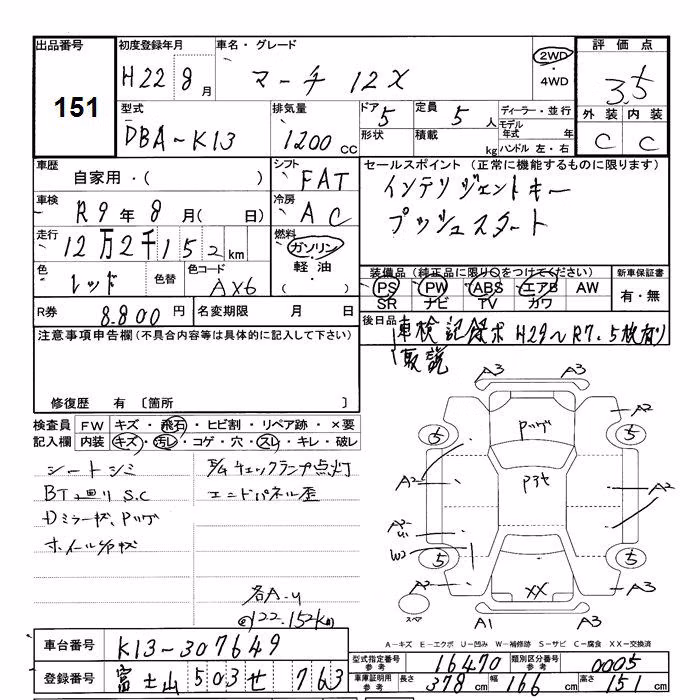 出品番号 初度登録年月 車名・グレード 評価点
151
H22 8月 マーチ 12X 2WD・4WD 3.5
型式 排気量 ドア 定員 ディーラー・並行 外装 内装
DBA-K13 1200cc 5 5人 モデル年式 年 C C
形状 積載 kg ハンドル 左・右
車歴 シフト セールスポイント (正常に機能するものに限ります)
自家用・( ) FAT インテリジェントキー
車検 冷房
R9年8月( 日) AC プッシュスタート
走行 燃料
12万2千152km ガソリン・軽油・( )
色 色替 色コード 装備品 (純正品に限り○をつけてください) 新車保証書
レッド AX6 PS PW ABS エアB AW 有・無
SR ナビ TV カワ
R券 8.800円 名変期限 月 日
後日品 車検 記録ボ H29~R7.5枚有り
取説
注意事項申告欄(不具合内容等は具体的に記入して下さい)
修復歴 有 〔箇所 〕
検査員記入欄 FW キズ・飛石・ヒビ割・リペア跡・×要
内装 キズ・汚レ・コゲ・穴・スレ・キレ・破レ
シートシミ E/Gチェックランプ点灯
BT廻りS.C エンドパネル歪
Dミラーキズ、Pツゲ
ホイールCPキズ
各A.U
122.152km
A3 A3
A2 A2
5 Pツゲ 5
A2 P3キ A2
A2
W2
5 5
A2 XX A3
スペア A1 A3
A-キズ E-エクボ U-凹み W-補修跡 S-サビ C-腐食 XX-交換済
車台番号 K13-307649
登録番号 富士山 503 せ 763
型式指定番号 参考 16470 類別区分番号 参考 0005
車庫証明用 参考 長さ 378cm 幅 166cm 高さ 151cm